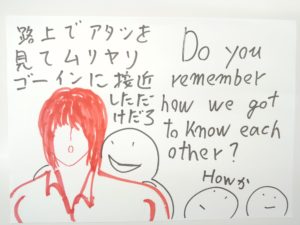 路上でアタシを
見てムリヤリ
ゴーインに接近
しただ
けだろ
Do you
remember
how we got
to know each
other?
Howか